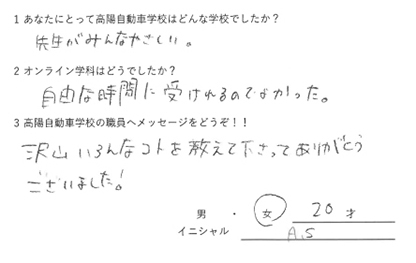 1 あなたにとって高陽自動車学校はどんな学校でしたか？
先生がみんなやさしい。
2 オンライン学科はどうでしたか？
自由な時間に受けれるのでよかった。
3 高陽自動車学校の職員へメッセージをどうぞ！！
沢山いろんなコトを教えて下さってありがとう
ございました！
男 ・ 女 20 才
イニシャル A.S